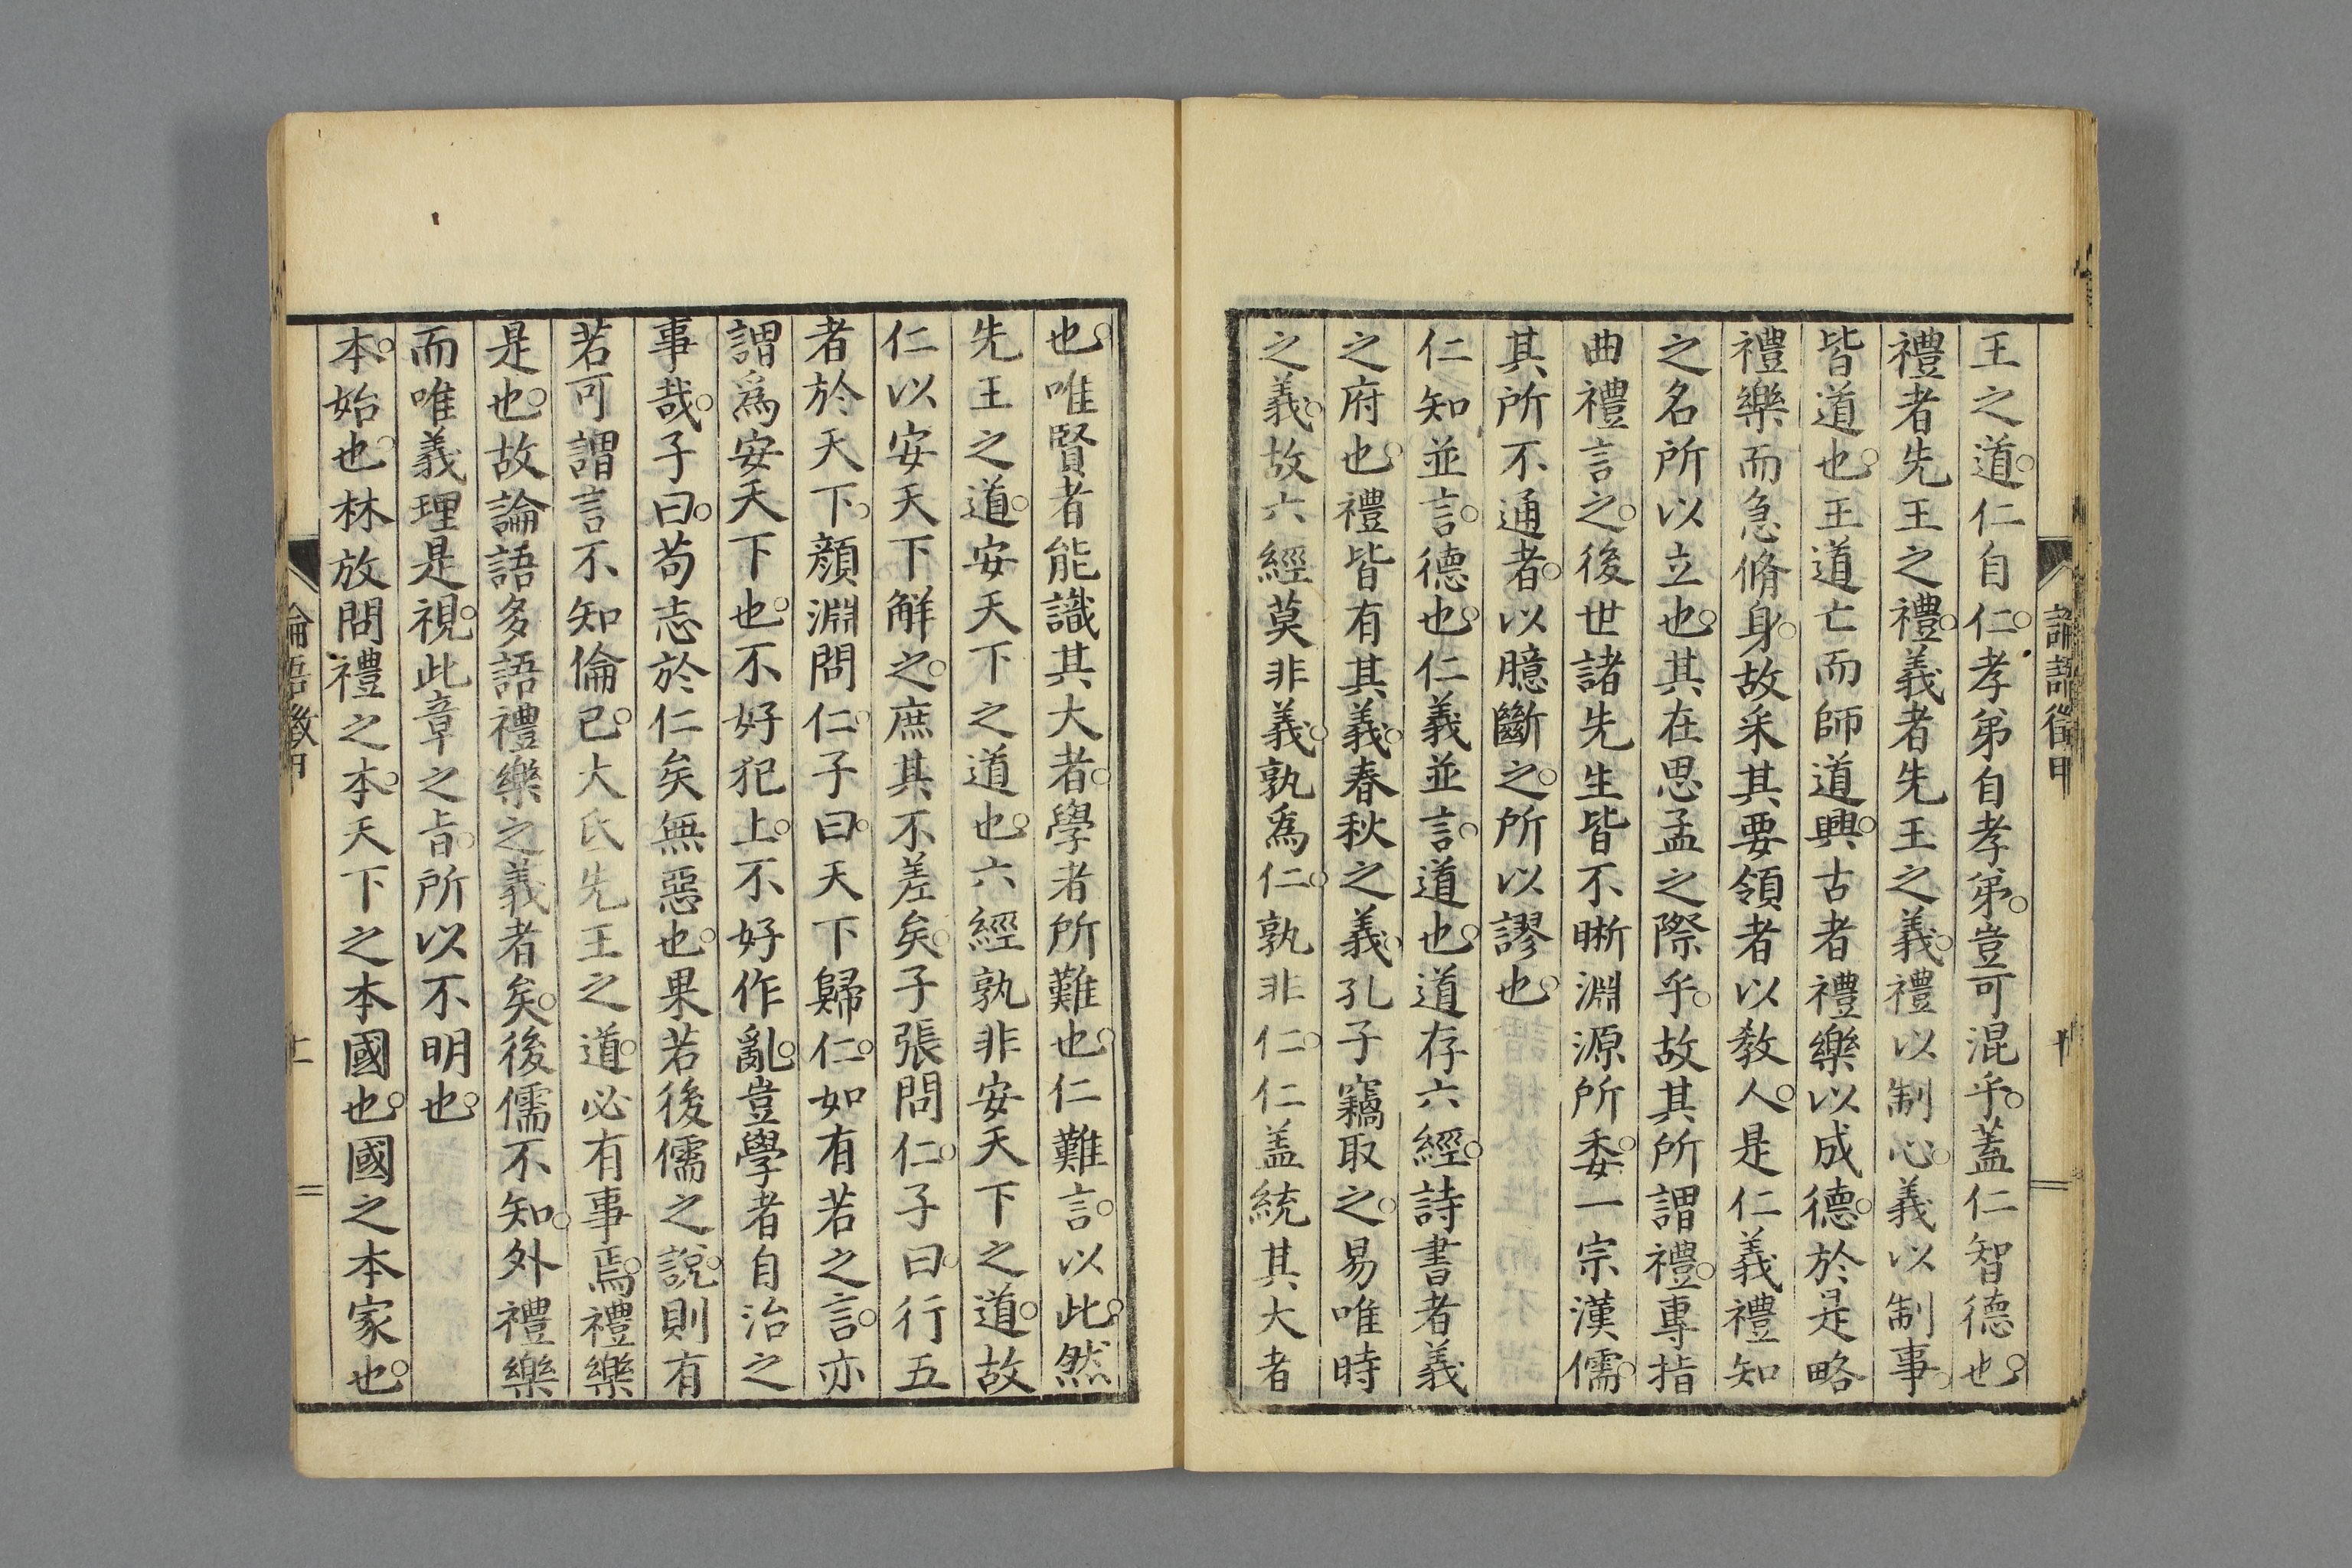 論語徵甲
十
王之道。仁自仁。孝弟自孝弟。豈可混乎。蓋仁智德也。
禮者先王之禮。義者先王之義。禮以制心。義以制事。
皆道也。王道亡而師道興。古者禮樂以成德。於是略
禮樂而急脩身。故采其要領者以敎人。是仁義禮知
之名所以立也。其在思孟之際乎。故其所謂禮。專指
曲禮言之。後世諸先生皆不晣淵源所委。一宗漢儒。
其所不通者。以臆斷之。所以謬也。
仁知並言。德也。仁義並言。道也。道存六經。詩書者義
之府也。禮皆有其義。春秋之義。孔子竊取之。易唯時
之義。故六經莫非義。孰爲仁。孰非仁。仁盖統其大者
也。唯賢者能識其大者。學者所難也。仁難言。以此。然
先王之道。安天下之道也。六經孰非安天下之道。故
仁以安天下解之。庶其不差矣。子張問仁。子曰。行五
者於天下。顏淵問仁。子曰。天下歸仁。如有若之言。亦
謂爲安天下也。不好犯上。不好作亂。豈學者自治之
事哉。子曰。苟志於仁矣無惡也。果若後儒之說。則有
若可謂言不知倫已。大氏先王之道。必有事焉。禮樂
是也。故論語多語禮樂之義者矣。後儒不知。外禮樂
而唯義理是視。此章之旨。所以不明也。
本。始也。林放問禮之本。天下之本國也。國之本家也。
論語徵甲
十一